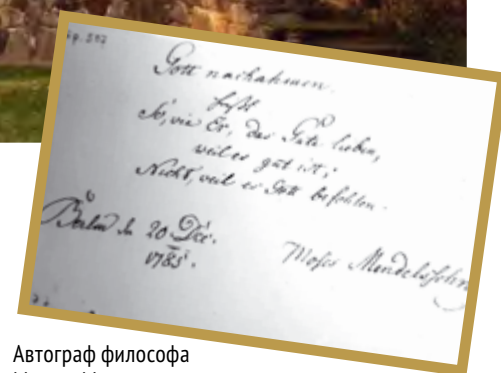 Gott nachahmen.
heißt
So, wie Er, das Gute lieben,
weil es gut ist;
Nicht, weil es Gott befohlen.
Berlin 20 Dec.
1785.
Moses Mendelssohn
Автограф философа